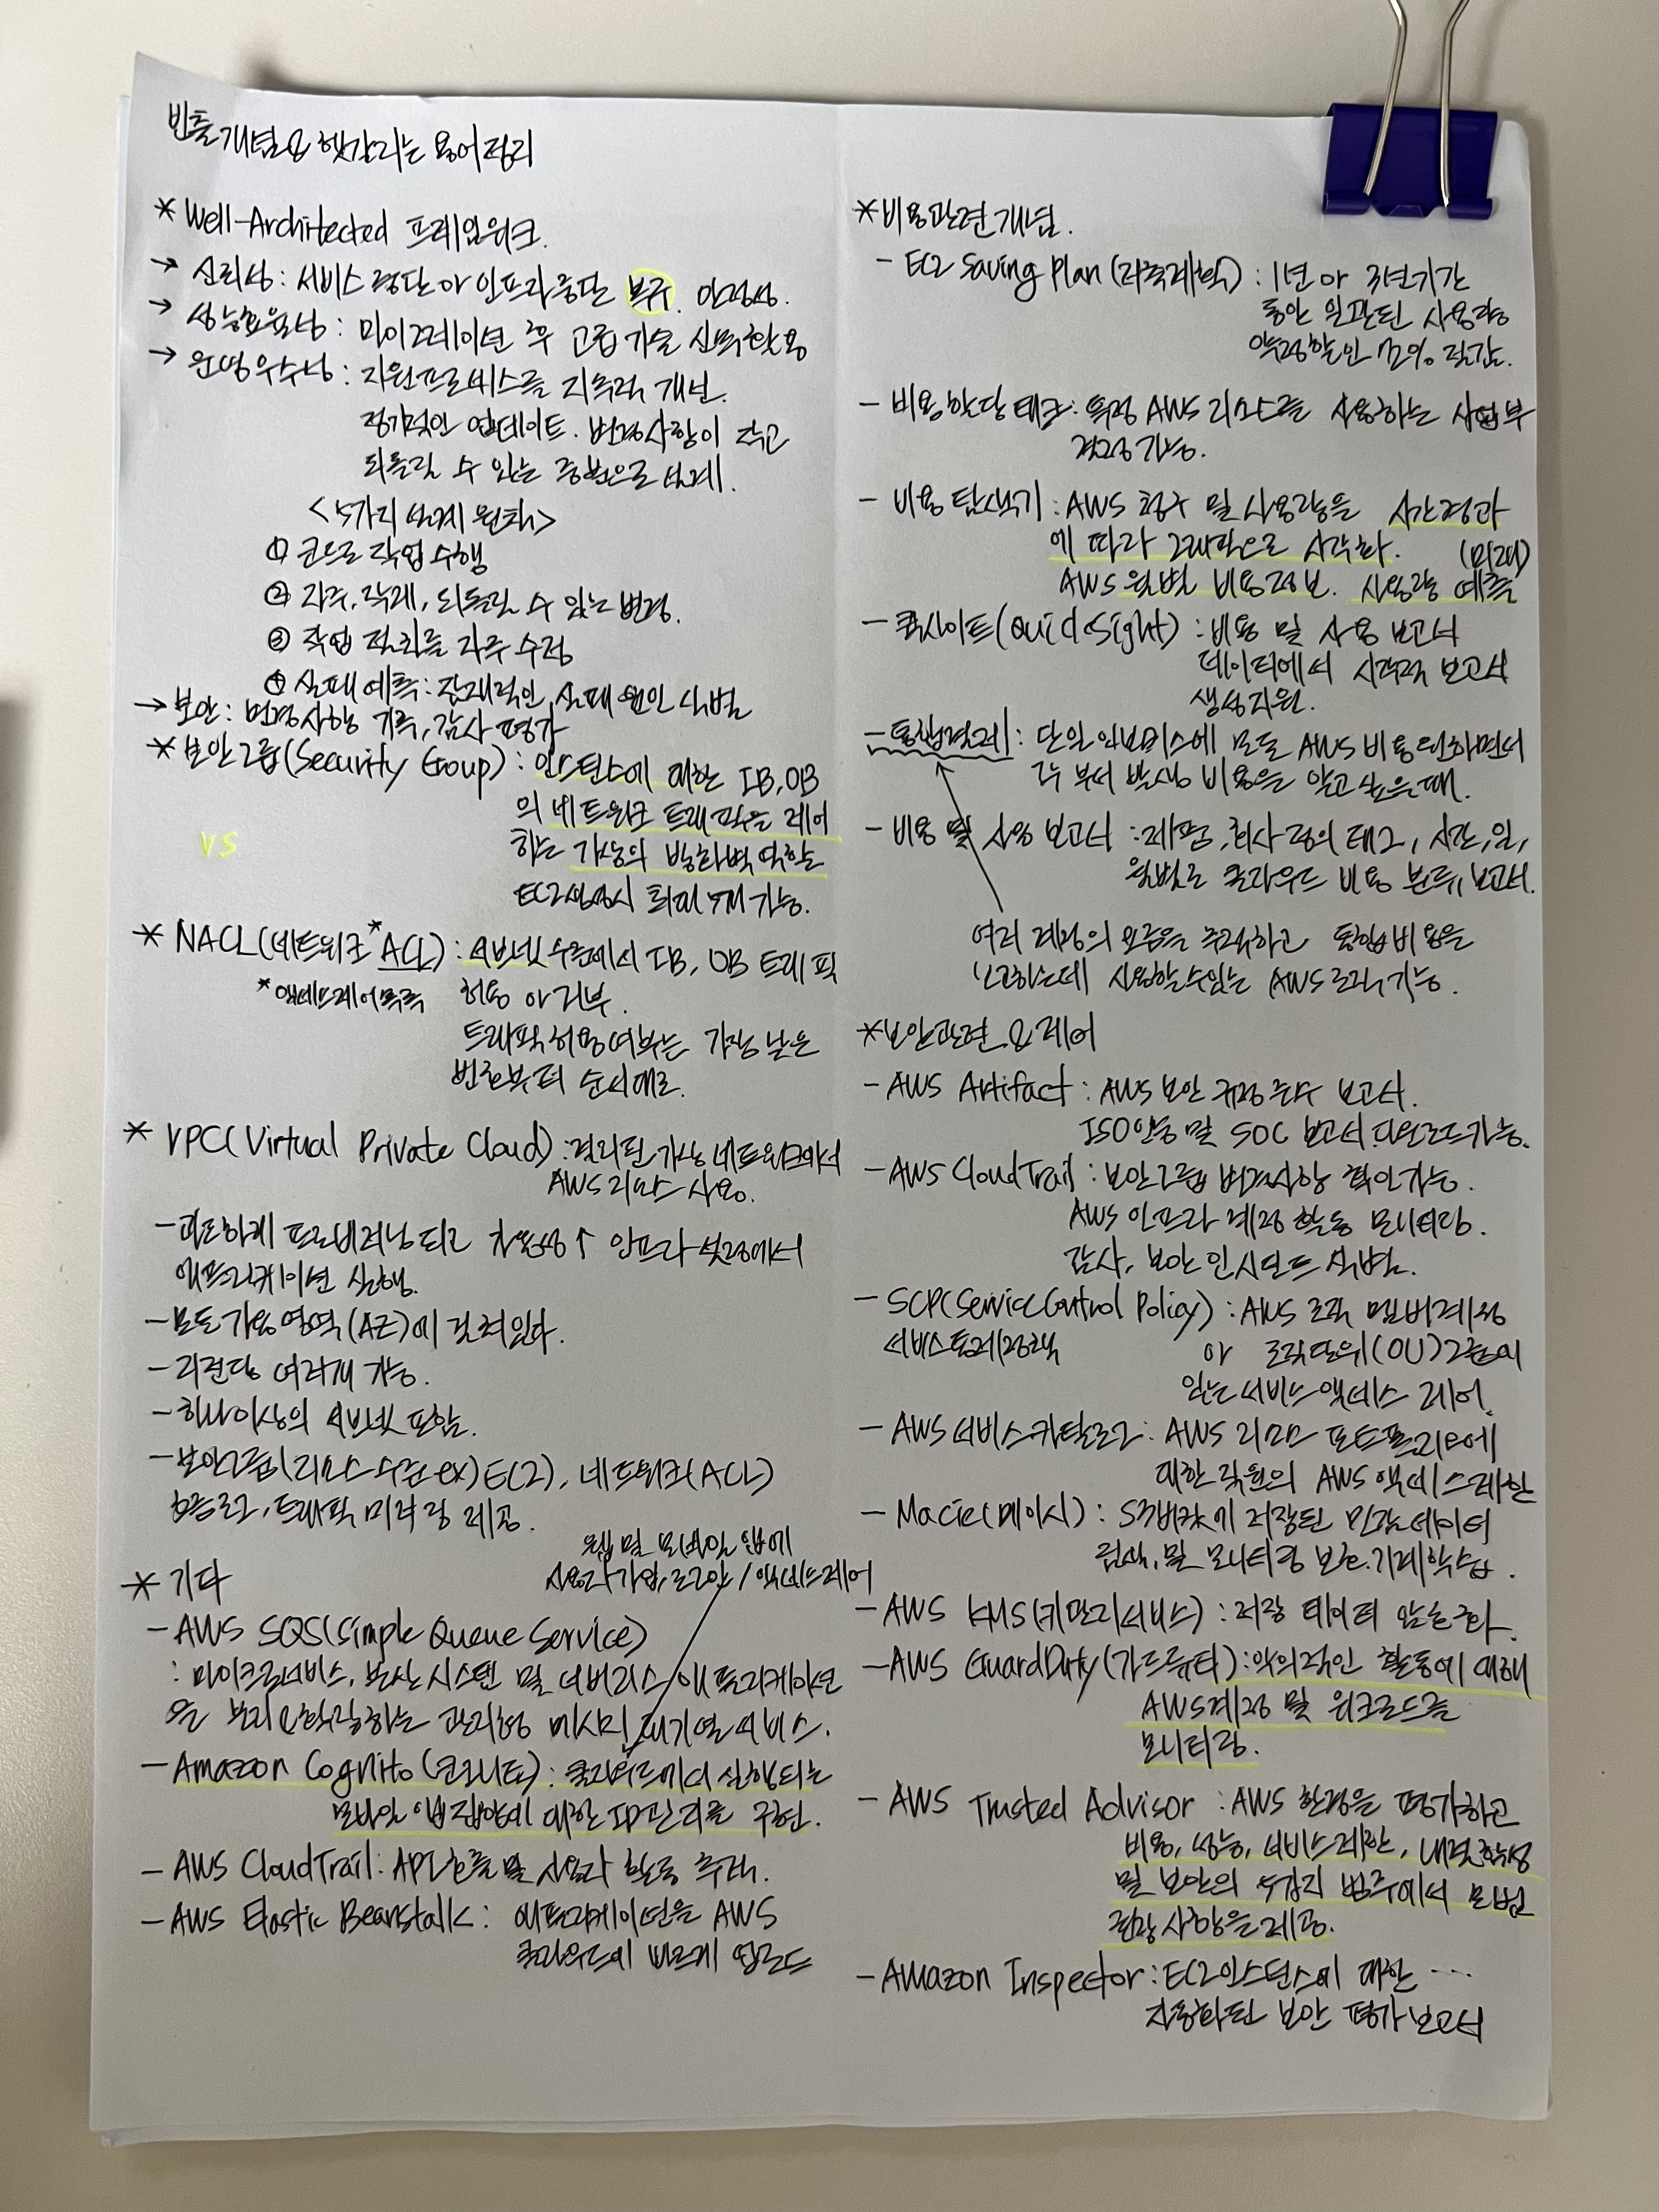 빈출개념 & 헷갈리는 용어정리
* Well-Architected 프레임워크.
→ 신뢰성 : 서비스 중단 or 인프라 중단 복구. 안정성.
→ 성능효율성 : 마이그레이션 후 고급 기술 신뢰활용
→ 운영우수성 : 지원프로세스를 지속적 개선.
정기적인 업데이트. 변경사항이 작고
되돌릴 수 있는 증분으로 설계.
<5가지 설계 원칙>
① 코드로 작업 수행
② 자주, 작게, 되돌릴 수 있는 변경.
③ 작업 절차를 자주 수정
④ 실패 예측 : 잠재적인 실패 원인 식별
→ 보안 : 변경사항 기록, 감사 평가
* 보안그룹(Security Group) : 인스턴스에 대한 IB, OB
의 네트워크 트래픽을 제어
하는 가상의 방화벽 역할
EC2생성시 최대 5개 가능.
vs
* NACL(네트워크 *ACL) : 서브넷 수준에서 IB, OB 트래픽
*액세스제어목록 허용 or 거부.
트래픽 허용여부는 가장 낮은
번호부터 순서대로.
* VPC(Virtual Private Cloud) : 격리된 가상 네트워크에서
AWS 리소스 사용.
- 과도하게 프로비저닝되고 가용성↑ 인프라 설정에서
애플리케이션 실행.
- 모든 가용영역(AZ)에 걸쳐있다.
- 리전당 여러개 가능.
- 하나 이상의 서브넷 포함.
- 보안그룹(리소스 수준 ex)EC2), 네트워크(ACL)
흐름로그, 트래픽 미러링 제공.
* 기타
웹 및 모바일 앱에
사용자가입, 로그인 / 액세스제어
- AWS SQS(Simple Queue Service)
: 마이크로서비스, 분산 시스템 및 서버리스 애플리케이션
을 분리 & 확장하는 관리형 메시지 대기열 서비스.
- Amazon Cognito(코그니토) : 클라우드에서 실행되는
모바일 앱 집합에 대한 ID관리를 구현.
- AWS CloudTrail : API 호출 및 사용자 활동 추적.
- AWS Elastic Beanstalk : 애플리케이션을 AWS
클라우드에 빠르게 업로드
* 비용관련개념.
- EC2 Saving Plan(저축계획) : 1년 or 3년기간
동안 일관된 사용량
약정할인 72% 절감.
- 비용 할당 태그 : 특정 AWS 리소스를 사용하는 사업부
결정가능.
- 비용 탐색기 : AWS 청구 및 사용량을 시간경과
에 따라 그래픽으로 시각화. (미래)
AWS 월별 비용정보. 사용량 예측
- 퀵사이트(QuickSight) : 비용 및 사용 보고서
데이터에서 시각적 보고서
생성지원.
- 통합결제 : 단일 인보이스에 모든 AWS 비용 원하면서
각 부서 발생 비용을 알고 싶을때.
- 비용 및 사용 보고서 : 제품, 회사 정의 태그, 시간, 일,
월별로 클라우드 비용 분류, 보고서.
여러 계정의 요금을 추적하고 통합비용을
보고하는데 사용할수있는 AWS 조직기능.
* 보안관련 & 제어
- AWS Artifact : AWS 보안 규정 준수 보고서.
ISO인증 및 SOC 보고서 다운로드가능.
- AWS CloudTrail : 보안그룹 변경사항 확인가능.
AWS 인프라 계정 활동 모니터링.
감사, 보안 인시던트 식별.
- SCP(Service Control Policy) : AWS 조직 멤버계정
서비스통제정책 or 조직단위(OU)그룹에
있는 서비스 액세스 제어.
- AWS 서비스 카탈로그 : AWS 리소스 포트폴리오에
대한 직원의 AWS 액세스 제한
- Macie(메이시) : S3버킷에 저장된 민감데이터
검색, 및 모니터링 보호. 기계학습.
- AWS KMS(키관리서비스) : 저장 데이터 암호화.
- AWS GuardDuty(가드듀티) : 악의적인 활동에 대해
AWS계정 및 워크로드를
모니터링.
- AWS Trusted Advisor : AWS 환경을 평가하고
비용, 성능, 서비스제한, 내결함성
및 보안의 5가지 범주에서 모범
권장 사항을 제공.
- Amazon Inspector : EC2인스턴스에 대한 ...
자동화된 보안 평가 보고서